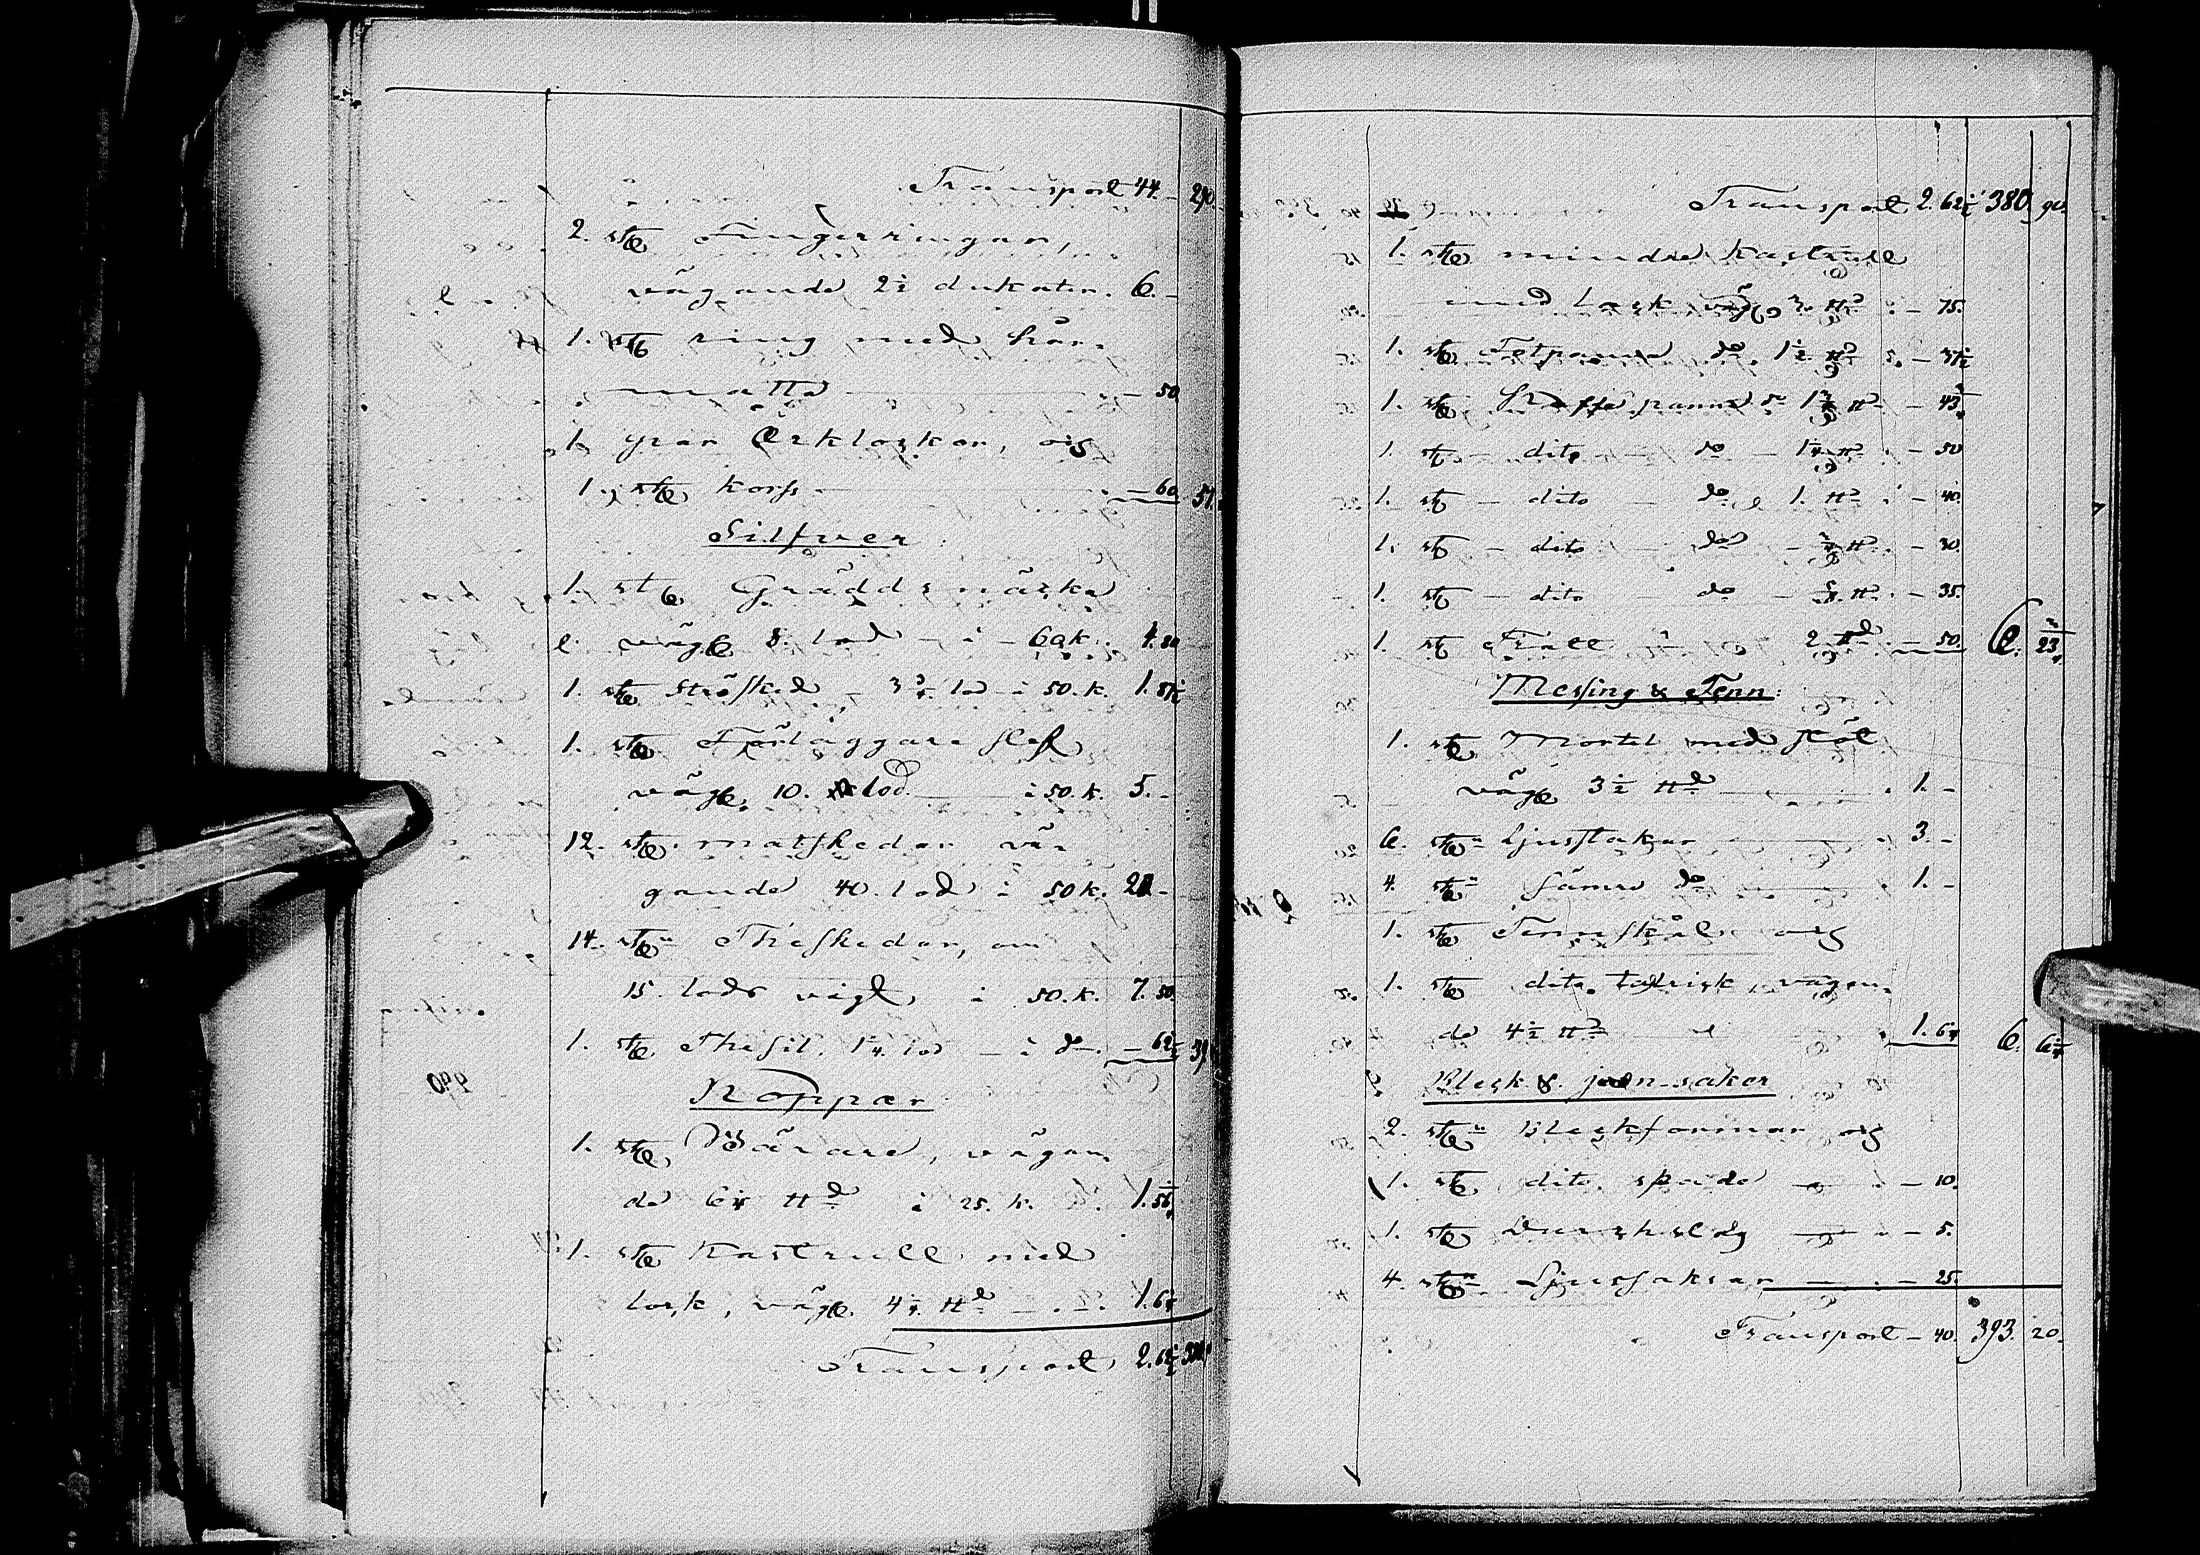 Transport 44. — 290.
2. stz Fingerringar,
vägande 2½ dukater. 6. —
1. stz ring med hår-
matta — 50
1. par Örklockor, och
1. stz korss — 60 51.
Silfwer
1. stz Gräddsnäcka
vägz 8. lod — i — 60 k. 4.80
1. stz Ströfked — 3¾ lod i 50. k. 1.87½
1. stz Förläggare slef
vägz. 10. lod. — i 50. k. 5. —
12. stz. matskedar vä-
gande 40. lod i 50 k. 20 —
14. stz Theskedar, om
15. lods vigt, i 50. k. 7.50
1. stz Thesil. 1¼. lod — i do — 62½ 39
Koppar
1. stz Bärare, vägan-
de 6¼ ℔ i 25. k. 1.56¼
1. stz Kastrull med
lock, vägz. 4¼ ℔ — 1.6¼
Transport 2.62½ 380
Transport 2.62½ 380. 90.
1. stz mindre Kastrull
med lock väg. 3. ℔ — 75.
1. stz Tetpanna do. 1½ ℔ — 37½
1. stz Kaffe panna do ℔ — 43¾
1. stz — dito — do — 1¼ ℔ — 50
1. stz — dito — do 1. ℔ — 40
1. stz — dito — do — ¾ ℔ — 30.
1. stz — dito — do — ⅝ ℔ — 35.
1. stz 2 ℔ — 50. 6. 23¾
Messing & Tenn.
1. stz Mortel med stöt
vägz 3½ ℔ — 1. —
6. stz Ljusstakar — 3. —
4. stz sämre do — 1. —
1. stz Tennskål och
1. stz dito. tallrick, vägan-
de 4½ ℔ — 1.6¼ 6. 6¼
Bleck & jern-saker
2. stz Bleckformar och
1. stz dito. spade — 10.
1. stz Durchslag — 5.
4. stz Ljussaksar — 25.
Transport — 40. 393. 20.